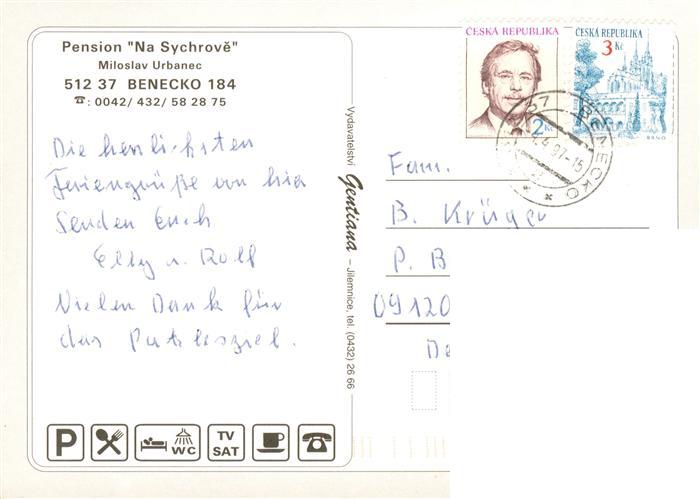 Pension "Na Sychrově"
Miloslav Urbanec
512 37 BENECKO 184
☎: 0042/ 432/ 58 28 75
Die herrlichsten
Feriengrüße von hier
Senden Euch
Elly u. Rolf
Vielen Dank für
das
P
WC
TV
SAT
Vydavatelství Gentiana – Jilemnice, tel. (0432) 26 66
ČESKÁ REPUBLIKA
2 Kč
ČESKÁ REPUBLIKA
3 Kč
BRNO
BENECKO
97-15
Fam.
B. Krüger
P. B
09120
De